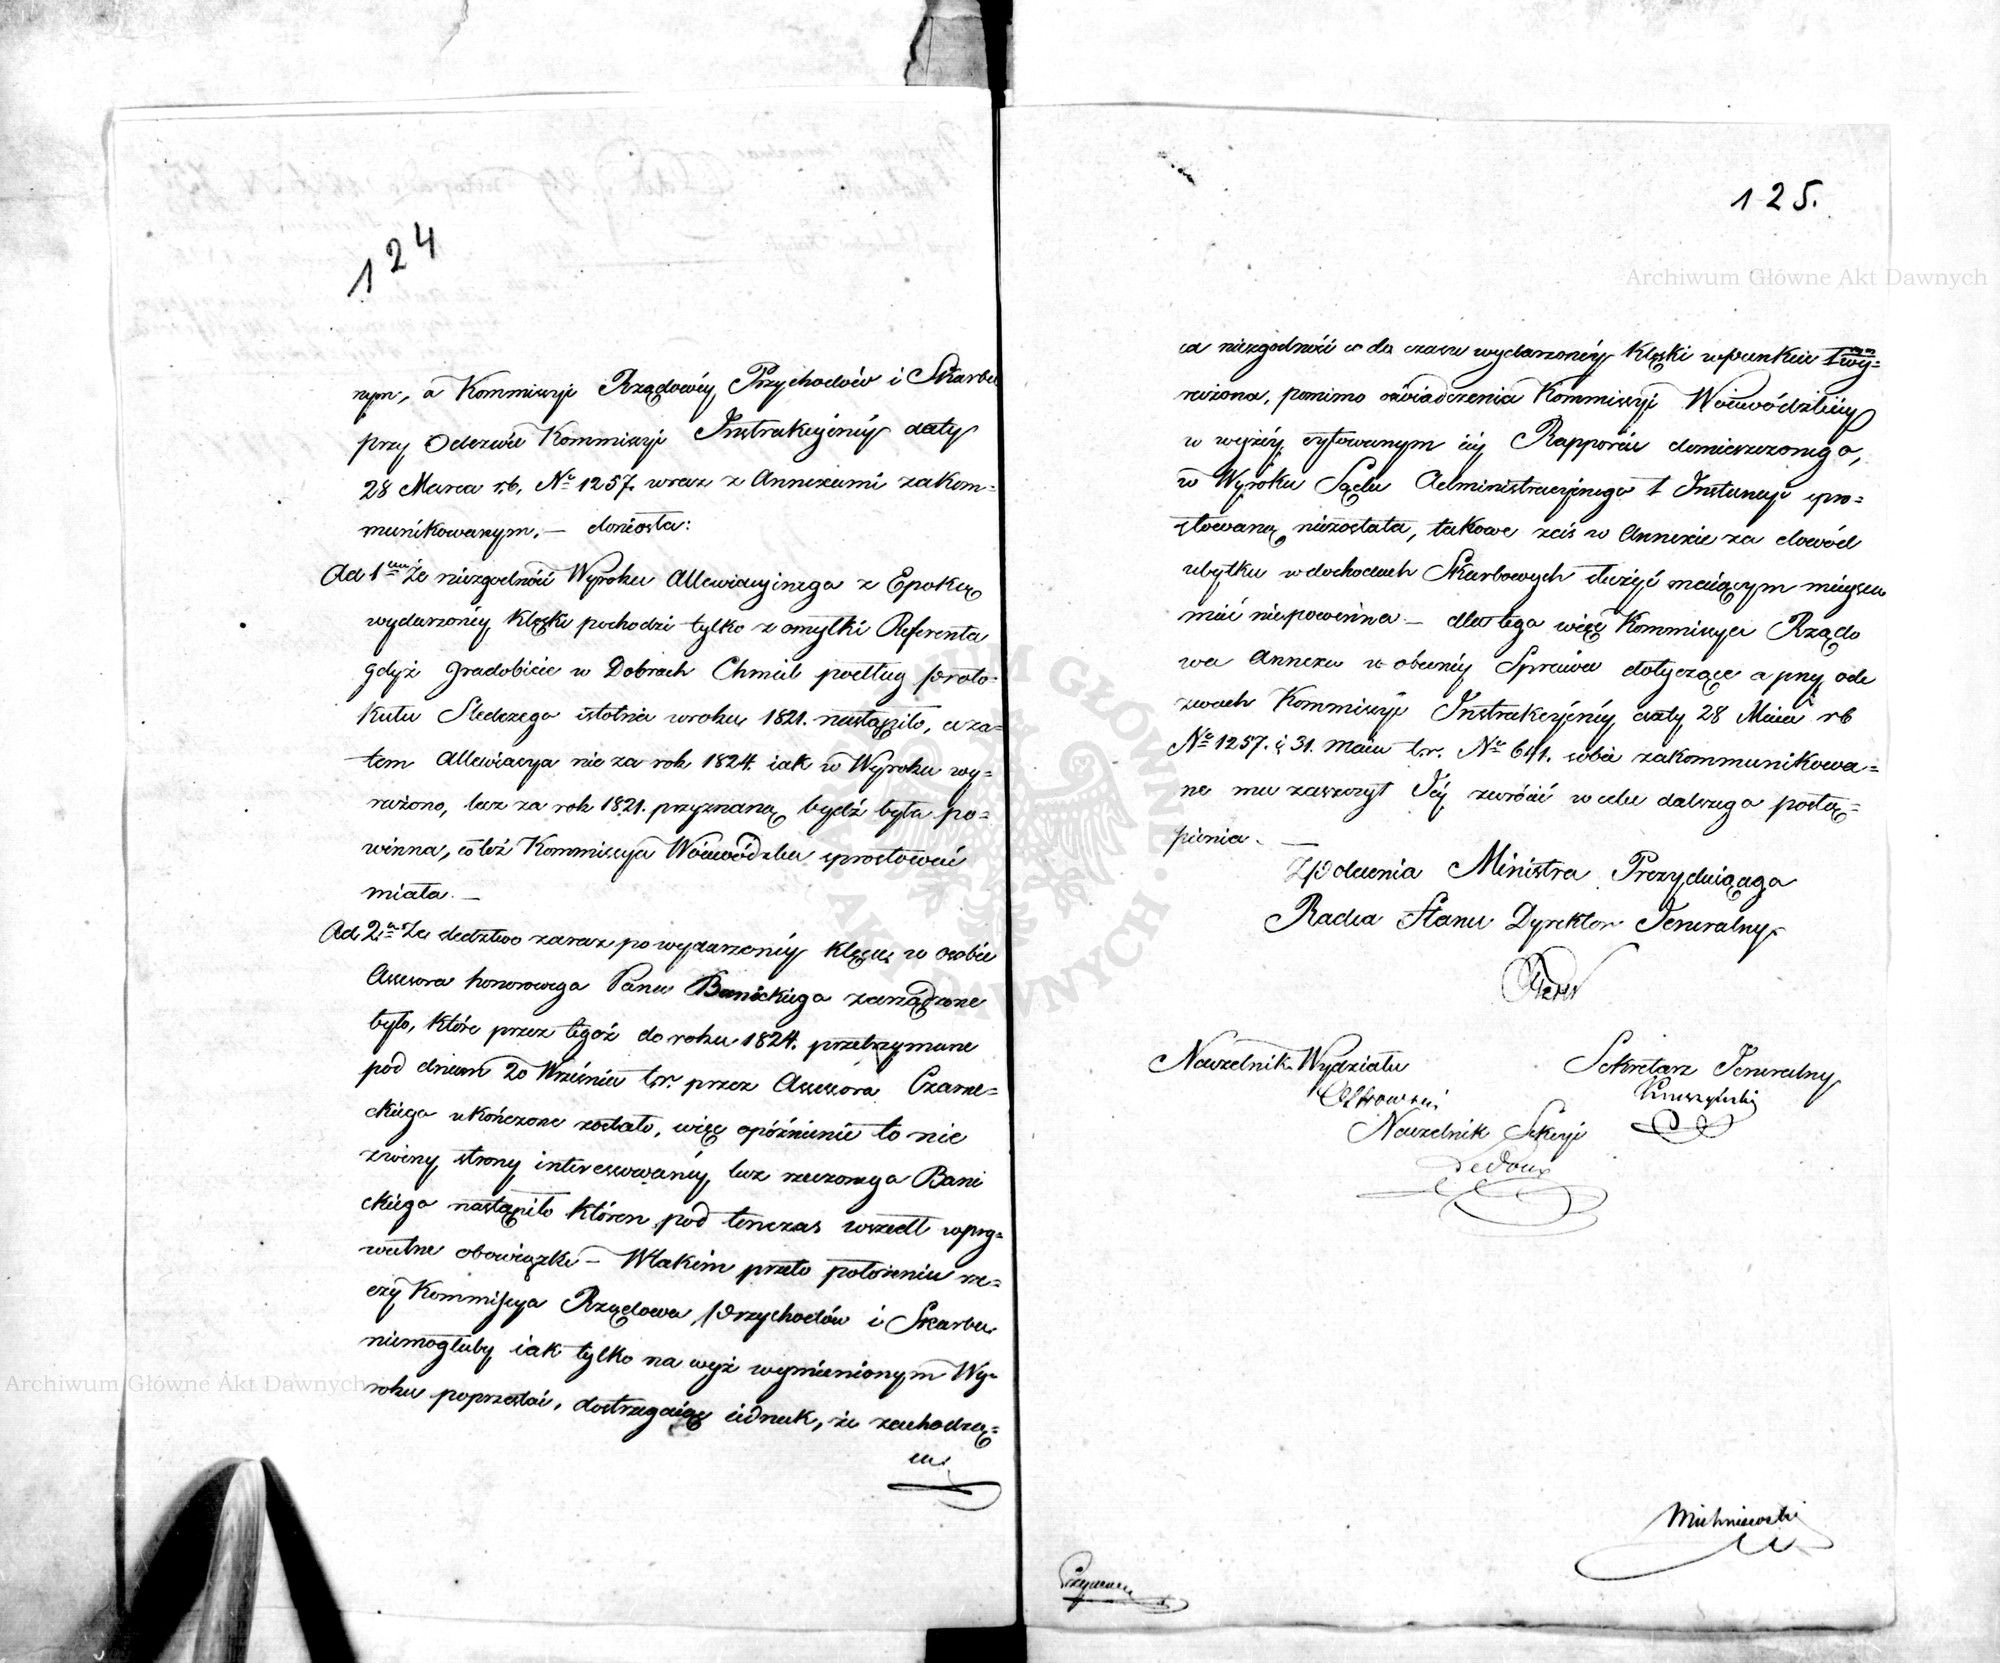 124
nym, a Kommissyi Rządowéy Przychodów i Skarbu
przy Odezwie Kommissyi Instrukcyinéy daty
28 Marca r.b. No 1257. wraz z Annexami zakom=
munikowanym. — doniosła:
Ad 1um Że niezgodność Wyroku Allewiacyinego z Epoką
wydarzonéy klęski pochodzi tylko z omyłki Referenta
gdyż gradobicie w Dobrach Chmiel podług proto=
kułu Śledczego istotnie w roku 1821. nastąpiło, a za=
tem Allewiacya nie za rok 1824. iak w Wyroku wy=
rażono, lecz za rok 1821. przyznaną bydź była po=
winna, co też Kommissya Woiewódzka sprostować
miała. —
Ad 2o Że śledztwo zaraz po wydarzonéy klęsce w osobie
Assessora honorowego Pana Banickiego zarządzone
było, które przez tegoż do roku 1824. przetrzymane
pod dniem 20 Września t.r. przez Assessora Czarne=
ckiego ukończone zostało, więc opóźnienie to nie
z winy strony interessowanéy, lecz rzeczonego Bani
ckiego nastąpiło któren pod tenczas wszedł w pry=
watne obowiązki — W takim przeto położeniu rze=
czy Kommissya Rządowa Przychodów i Skarbu
niemogłaby iak tylko na wyż wymienionym Wy=
roku poprzestać, dostrzegaiąc iednak, że zachodzą=
ca
125.
ca niezgodność co do czasu wydarzonéy klęski w punkcie 1wszym wy=
rażona, pomimo oświadczenia Kommissyi Woiewódzkiéy
w wyżéy cytowanym iéy Rapporcie domieszczonego,
w Wyroku Sądu Administracyinego 1 Instancyi spro=
stowaną niezostała, takowe zaś w Annexie za dowód
ubytku w dochodach Skarbowych służyć maiącym mieysca
mieć niepowinna — dla tego więc Kommissya Rządo
wa Annexa w obecnéy Sprawie dotyczące a przy ode
zwach Kommissyi Instrukcyinéy daty 28 Maia rb
No 1257. i 31. maia t.r. No 641. sobie zakommunikowa=
ne ma zaszczyt Jéy zwrócić w celu dalszego postą=
pienia. —
Z polecenia Ministra Prezyduiącego
Radca Stanu Dyrektor Jeneralny
Naczelnik Wydziału
Sekretarz Jeneralny
Ostrowski
Naczelnik Sekcyi
Ledoux
Michniewski
Archiwum Główne Akt Dawnych
Archiwum Główne Akt Dawnych
ARCHIWUM GŁÓWNE AKT DAWNYCH